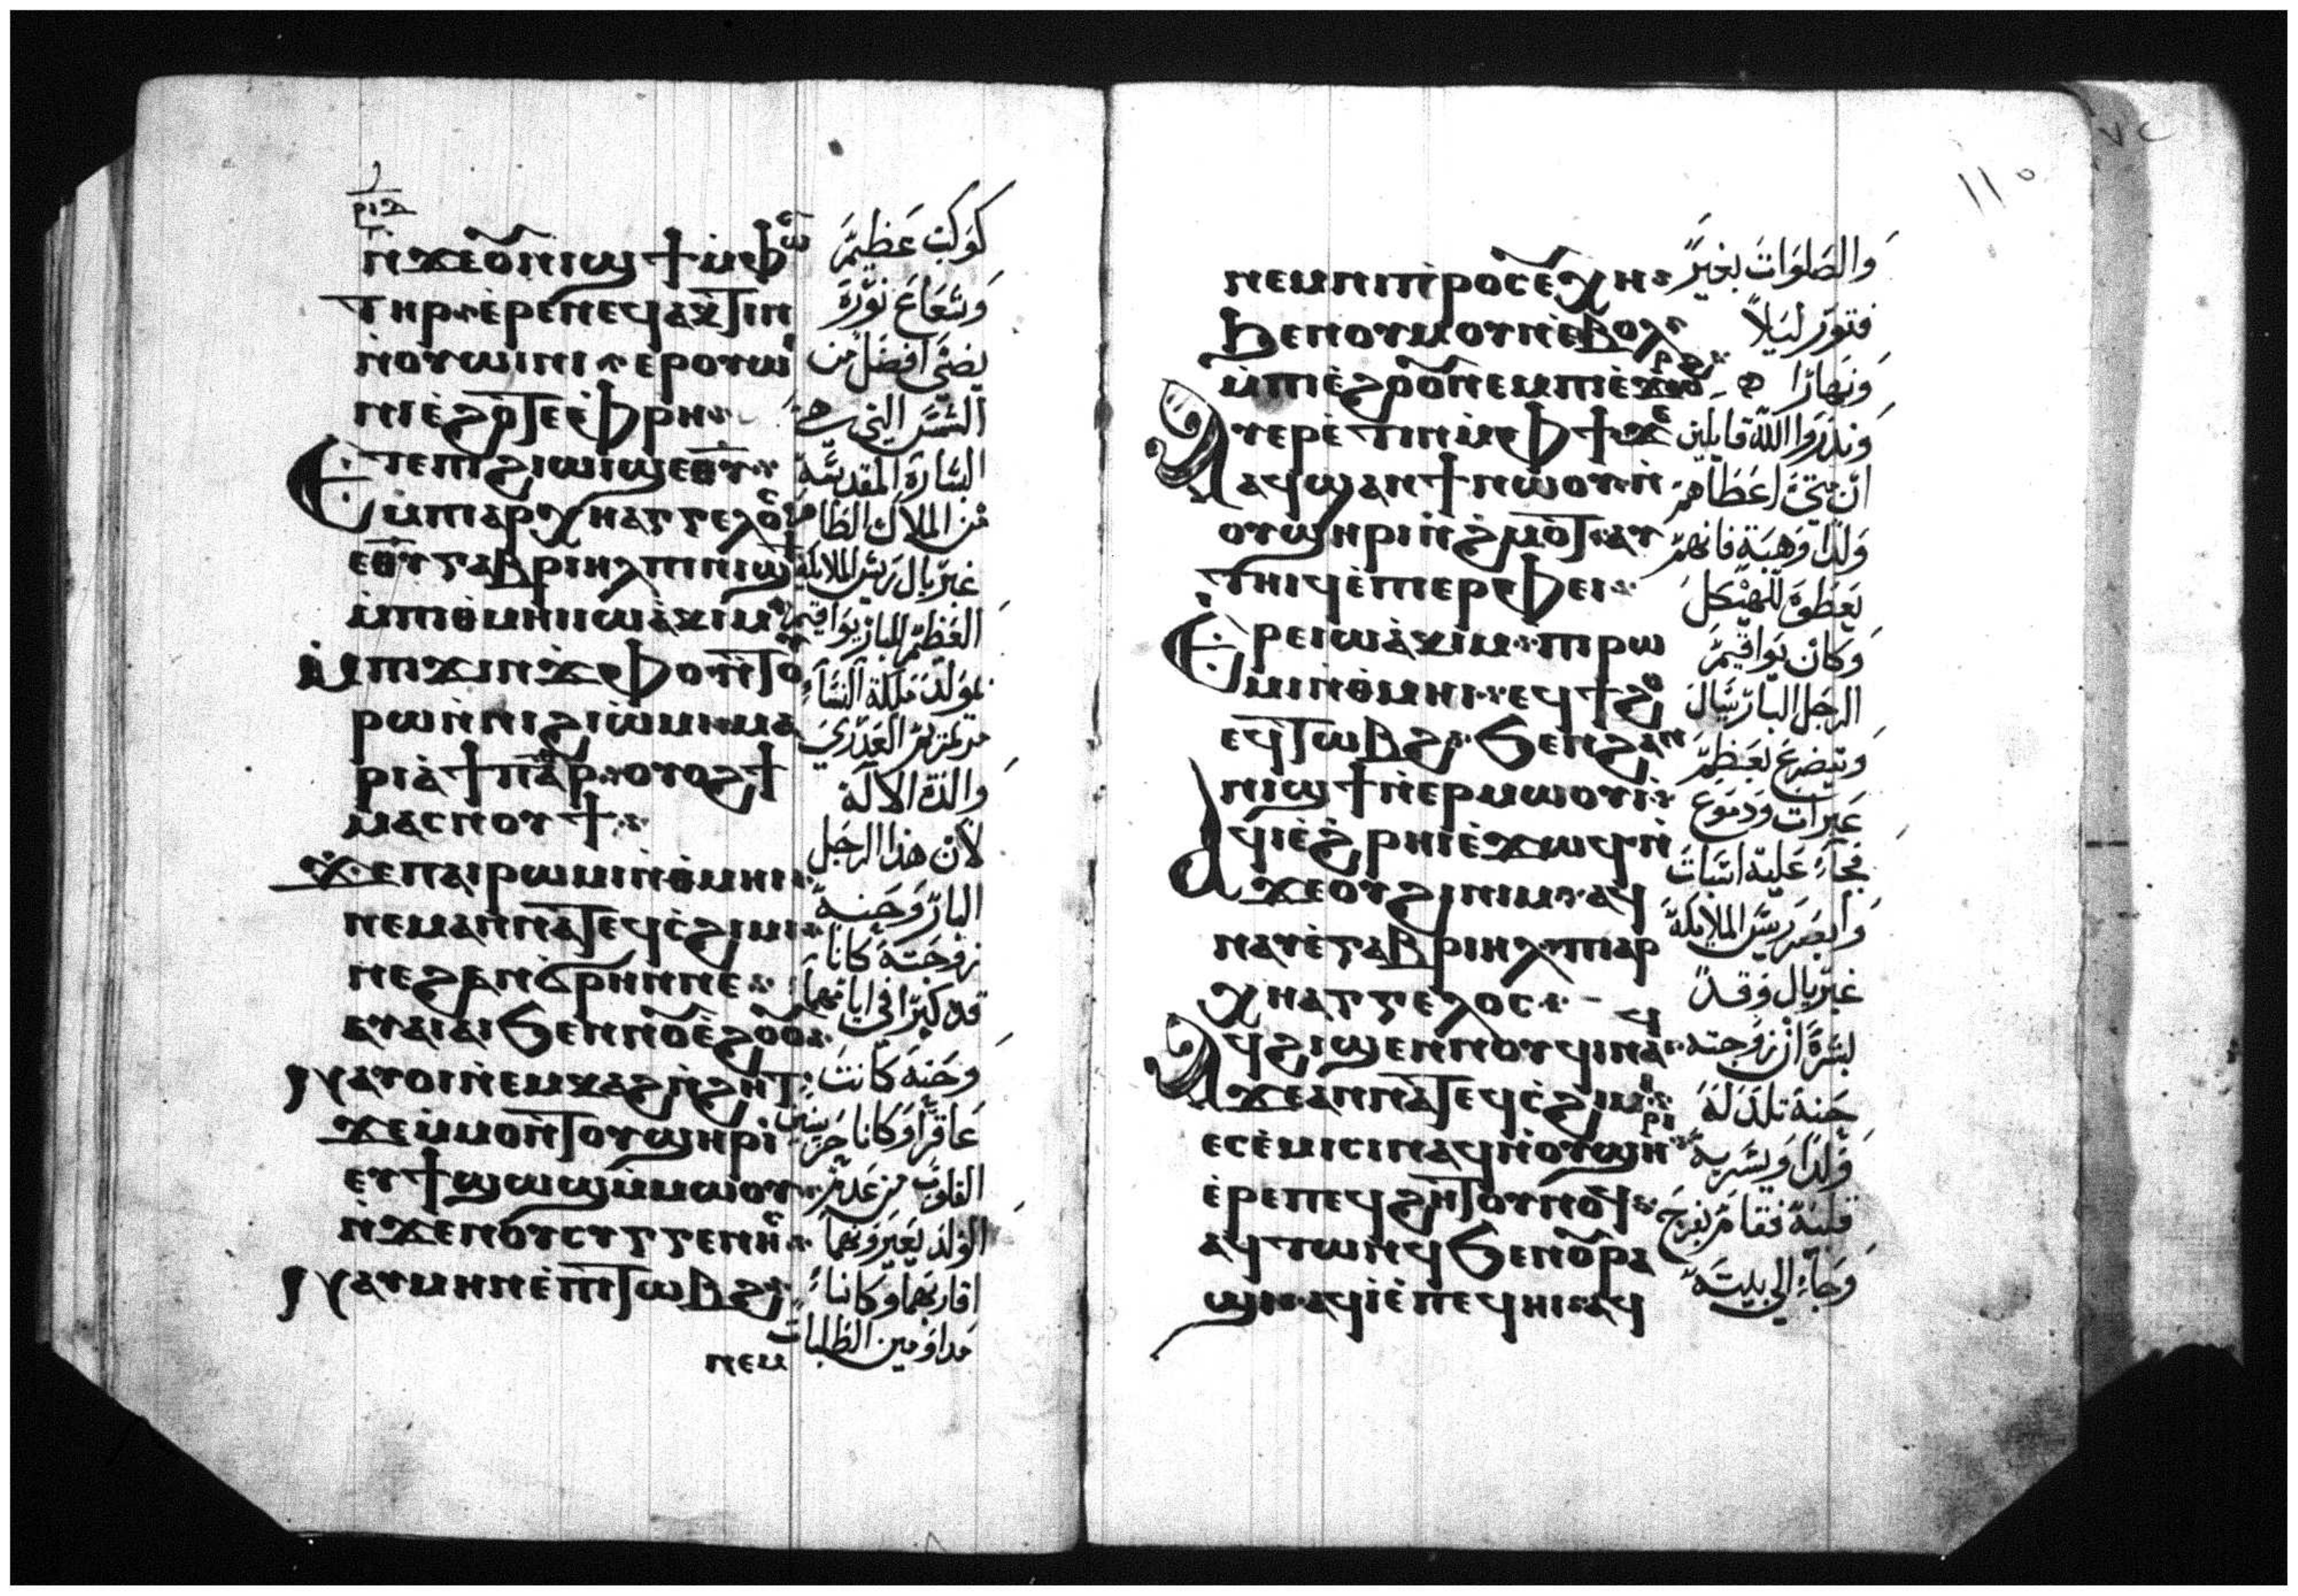 ⲣⲓⲇ
ⲛ̇ϫⲉⲟⲩⲛⲓϣϯ ⲙ̇ⲫⲱⲥ
ⲧⲏⲣ ⲉ̇ⲣⲉⲛⲉϥⲁⲕⲧⲓⲛ
ⲛ̇ⲟⲩⲱⲓⲛⲓ ⲉⲣⲟⲩⲱ
ⲛⲓⲉ̇ϩⲟ̇ⲧⲉ ⲉ̇ⲫⲣⲏ
Ⲉⲧⲉⲡⲓϩⲓⲱⲓϣ ⲉⲑⲩ
ⲉⲙⲡⲁⲣⲭⲏⲁⲅⲅⲉⲗⲟⲥ
ⲉⲑⲩ ⲅⲁⲃⲣⲓⲏⲗ ⲡⲓⲛⲓϣϯ
ⲙ̇ⲡⲑⲙⲏⲓ ⲓⲱⲁ̇ⲕⲓⲙ
ⲙ̇ⲡϫⲓⲛϫⲫⲟ ⲛ̇ϯⲟⲩ
ⲣⲱ ⲛ̇ⲛⲓϩⲓⲟ̇ⲙⲓ ⲙⲁ
ⲣⲓⲁ̇ ϯⲡⲁⲣ ⲟⲩⲟϩ ϯ
ⲙⲁⲥⲛⲟⲩϯ
ϫⲉⲡⲁⲓⲣⲱⲙⲓ ⲛ̇ⲑⲙⲏⲓ
ⲛⲉⲙ ⲁⲛⲛⲁ ⲧⲉϥⲥ̇ϩⲓⲙⲓ
ⲛⲉϩⲁⲛϭⲣⲏⲛ ⲛⲉ
ⲁⲩⲁⲓⲁⲓ ϧⲉⲛⲛⲟⲩⲉ̇ϩⲟⲟⲩ
ⲛⲁⲩⲟⲓ ⲛ̇ⲉⲙⲕⲁϩ ⲛ̇ϩⲏⲧ
ϫⲉⲙ̇ⲙⲟⲛⲧⲟⲩ ϣⲏⲣⲓ
ⲉⲩϯϣⲱϣ ⲙ̇ⲙⲱⲟⲩ
ⲛ̇ϫⲉⲛⲟⲩⲥⲩⲅⲅⲉⲛⲏⲥ
ⲛⲁⲩⲙⲏⲛ ⲉ̇ⲡⲧⲱⲃϩ
ⲛⲉⲙ
كوكب عظيم
وشعاع نوره
يضي افضل من
الشمس التي هي
البشارة المقدسة
من الملاك الطاهر
غبريال رييس الملايكة
العظيم للبار يواقيم
بمولد ملكة النساء
مريم العذري
والدة الاله
لان هذا الرجل
البار وحنه
زوجته كانا
قد كبرا في ايامهما
وحنه كانت
عاقرا وكانا حزينين
القلوب من عدم
الولد يعيروهما
اقاربهما وكانا
مداومين الطلبات
١١٥
ⲛⲉⲙ ⲛⲓⲡⲣⲟⲥⲉⲩⲭⲏ
ϧⲉⲛⲟⲩⲙⲟⲩⲛ ⲉ̇ⲃⲟⲗ
ⲙ̇ⲡⲓⲉ̇ϩⲟⲟⲩ ⲛⲉⲙ ⲡⲓⲉ̇ϫⲱⲣϩ
Ⲁⲩⲉⲣⲉ̇ⲧⲓⲛ ⲙ̇ⲫϯ ϫⲉ
ⲁϥϣⲁⲛϯ ⲛⲱⲟⲩ ⲛ̇
ⲟⲩϣⲏⲣⲓ ⲛ̇ϩ̇ⲙⲟⲧ ⲁⲩ
ⲧⲏⲓϥ ⲉ̇ⲡⲉⲣⲫⲉⲓ
Ⲉⲣⲉ ⲓⲱⲁ̇ⲕⲓⲙ ⲡⲓⲣⲱ
ⲙⲓ ⲛ̇ⲑⲙⲏⲓ ⲉϥϯϩⲟ
ⲉϥⲧⲱⲃϩ ϧⲉⲛϩⲁⲛ
ⲛⲓϣϯ ⲛ̇ⲉⲣⲙⲱⲟⲩⲓ
ⲁϥⲓ̇ ⲉ̇ϩ̇ⲣⲏⲓ ⲉ̇ϫⲱϥ ⲛ̇
ϫⲉⲟⲩϩⲓⲛⲓⲙ ⲁϥ
ⲛⲁⲩ ⲉ̇ⲅⲁⲃⲣⲓⲏⲗ ⲡⲓⲁⲣ
ⲭⲏⲁⲅⲅⲉⲗⲟⲥ
Ⲁϥϩⲓϣⲉⲛⲛⲟⲩϥⲓ ⲛⲁϥ
ϫⲉⲁⲛⲛⲁ ⲧⲉϥⲥ̇ϩⲓⲙⲓ
ⲉⲥⲉ̇ⲙⲓⲥⲓ ⲛⲁϥ ⲛ̇ⲟⲩϣⲏⲣⲓ
ⲉ̇ⲣⲉⲡⲉϥϩⲏⲧ ⲟⲩⲛⲟϥ
ⲁϥⲧⲱⲛϥ ϧⲉⲛⲟⲩⲣⲁ
ϣⲓ ⲁϥⲓ̇ ⲉ̇ⲡⲉϥⲏⲓ ⲁϥ
والصلوات بغير
فتور ليلا
ونهارا
ونذروا الله قايلين
ان متى اعطاهم
ولدا وهبة فانهم
يعطوه للهيكل
وكان يواقيم
الرجل البار يسال
ويتضرع بعظيم
عبرات ودموع
فجاء عليه اسبات
وابصر رييس الملايكة
غبريال وقد
بشره ان زوجته
حنه تلد له
ولدا ويسر به
قلبه فقام بفرح
وجاء الي بيته